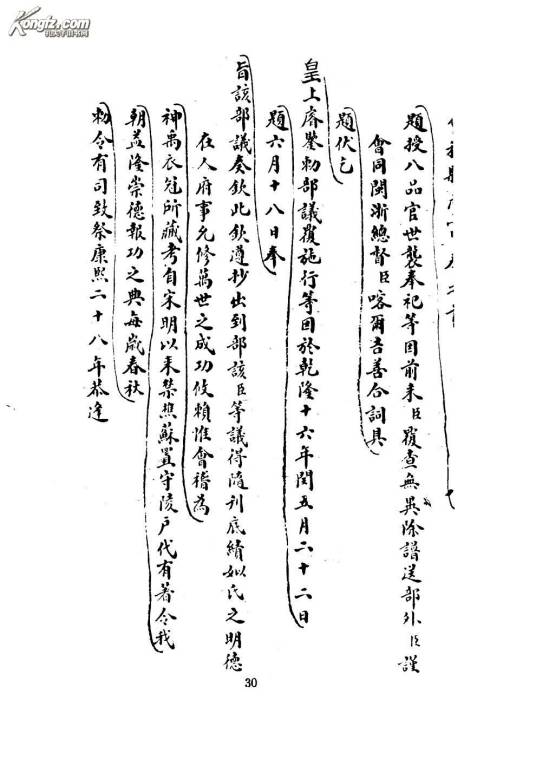 Kongfz.com
孔夫子旧书网
題授八品官世襲奉祀等因前来臣覆查無異除譜送部外臣謹
會同閩浙總督臣喀爾吉善合詞具
題伏乞
皇上睿鑒勅部議覆施行等因於乾隆十六年閏五月二十二日
題六月十八日奉
旨該部議奏欽此欽遵抄出到部該臣等議得隨刊底績姒氏之明德
在人府事允修萬世之成功攸賴惟會稽為
神禹衣冠所藏考自宋明以来禁樵蘇置守陵戶代有著令我
朝益隆崇德報功之典每歲春秋
勅令有司致祭康熙二十八年恭逢
30